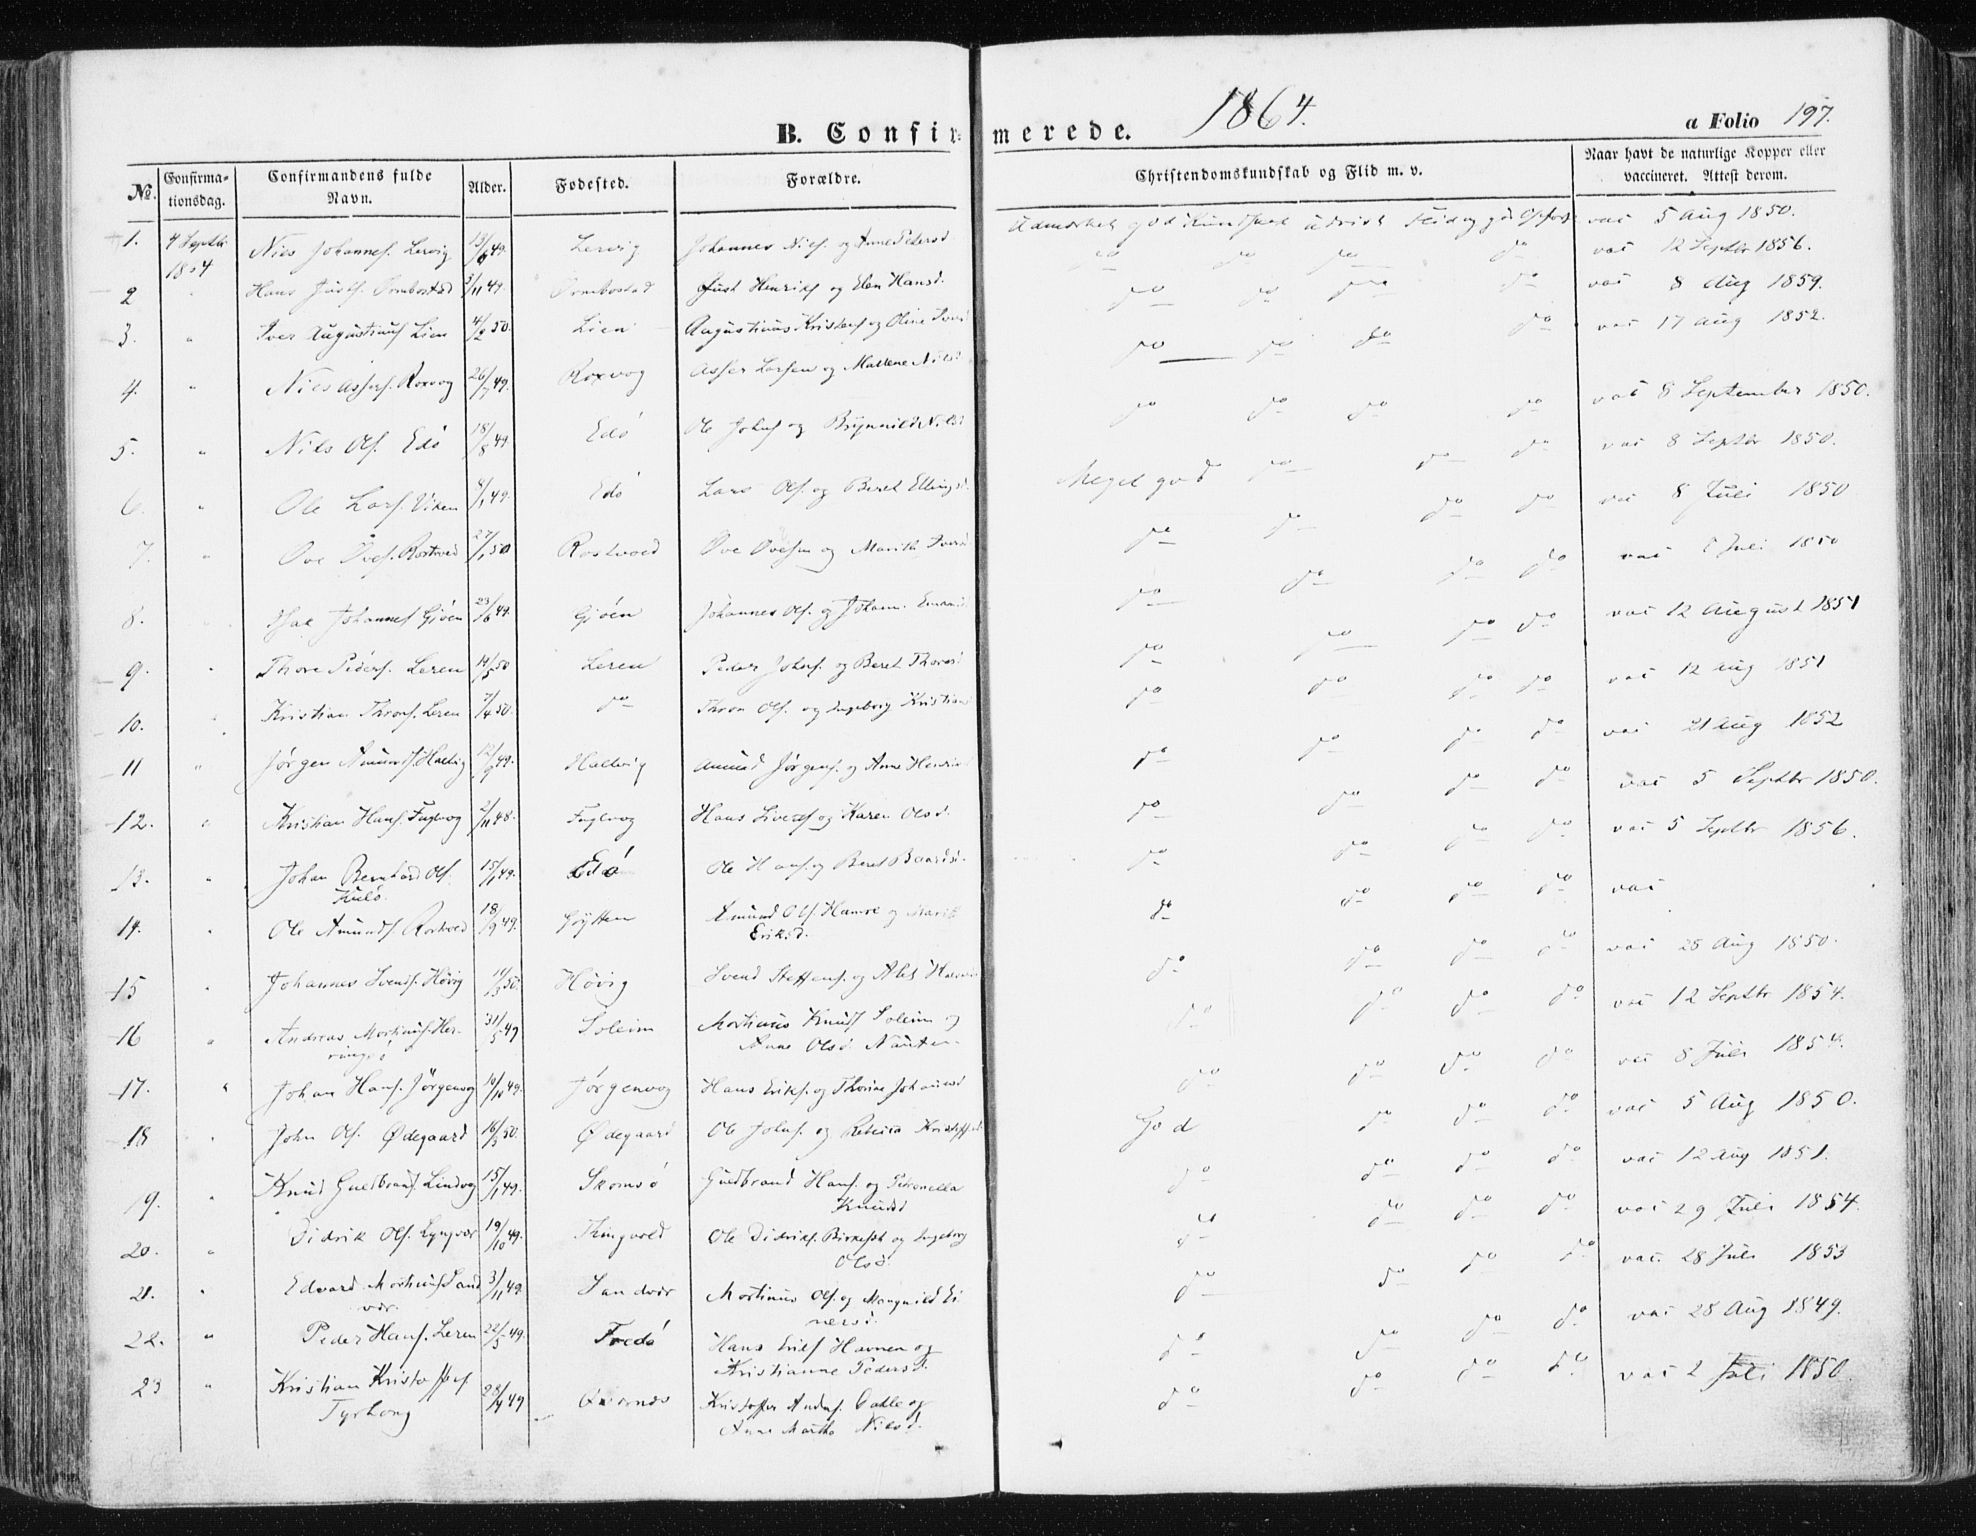 B. Confirmerede. 1864. a Folio 197.
No. Confirmationsdag. Confirmandens fulde Navn. Alder. Fødested. Forældre. Christendomskundskab og Flid m. v. Naar havt de naturlige Kopper eller vaccineret. Attest derom.
1. 4 Septbr Niels Johannes. Lervig 13/6 49. Lervig Johannes Niels. og Anne Petersd. god Kundskab Flid og vac 5 Aug 1850.
2 Hans Justs. Ormbostad 3/11 49. Ormbostad Just Henriks. og Elen Hansd. do do do do vac 12 Septbr 1856.
3. " Iver Augustinus. Lien 4/2 50. Lien Augustinus Kristens. og Oline Iversd do do do do vac 8 Aug 1859.
4. " Niels Assers. Roxvog 26/7 49. Roxvog Asser Larsen og Malene Nilsd do do do do vac 17 Aug 1852.
5. " Nils Ols. Edø 18/8 49. Edø Ole Johns. og Brynnild Nilsd do do do do vac 8 September 1850.
6. " Ole Lars. Viken 9/1 49. Edø Lars Ols. og Beret Ellingsd. Meget god do do do vac 8 Septbr 1850.
7. " Ove Oves. Rostvod 27/1 50 Rostvoed Ove Ovesen og Marith Iversd do do do do vac 8 Juli 1850
8. Johannes Gjøen 23/6 49. Gjøen Johannes Ols. og do do do do vac Juli 1850
9. " Thore Peders. Leren 14/5 50 Leren Peder Johns. og Beret Thoresd do do do do vac 12 August 1851
10. " Kristian Throns. Leren 7/4 50. do Thron Ols. og Ingeborg Kristiansd do do do do vac 12 Aug 1851
11 " Jørgen Amunds. Halvig 12/9 49. Halvig Amund Jørgens. og Anne do do do do vac 21 Aug 1852
12. " Kristian Hans. Fuglvog 2/11 48. Fuglvog Hans Sivers og Karen Olsd. do do do do vac 5 Septbr 1850.
13. " Johan Bernhard Ols. Kulø. 15/1 49. Edø Ole Hans. og Beret Baardsd. do do do do vac 5 Septbr 1856.
14. " Ole Amunds. Rostvod 18/9 49. Amund Ols Hamre og Marit Eriksd. do do do do vac
15 " Johannes Svends. Høvig 19/3 50. Høvig Svend Steffens. og do do do do vac 28 Aug 1850.
16 " Andreas Mortinus. Her- 31/5 49 Soleim Mortinus Knuds Soleim og Anne Olsd. do do do vac 12 Septbr 1854.
17. " Johan Hans. Jørgenvog 10/10 49. Jørgenvog Hans Eriks. og Thorine Johannesd do do do do vac 8 Juli 1854.
18 " John Ols. Ødegaard 16/3 50. Ødegaard Ole Johns. og Rebecca God do do do vac 5 Aug 1850.
19. " Knud Guldbrands. Lindvog 15/1 49. Skomsø Guldbrand Hans. og Petronella Knudsd do do do do vac 12 Aug 1851.
20. " Didrik Ols. Lyngvær 19/10 49. Thingvold Ole Didriks. og Ingeborg Olsd. do do do do vac 29 Juli 1854.
21. " Edvard Mortinus Sandvær. 3/11 49. Sandvær Mortinus Ols. og Mangnild Einersd. do do do do vac. 28 Juli 1853
22. " Peder Hans. Leren 22/5 49. Fredø Hans Eriks Havnen og Kristianne Pedersd. do do do do vac 28 Aug 1849.
23 " Kristian Kristoffers Tyrhoug 28/4 49 Kristoffer Anders. Dahle og Anne Martha Nilsd. do do do do vac 2 Juli 1850.